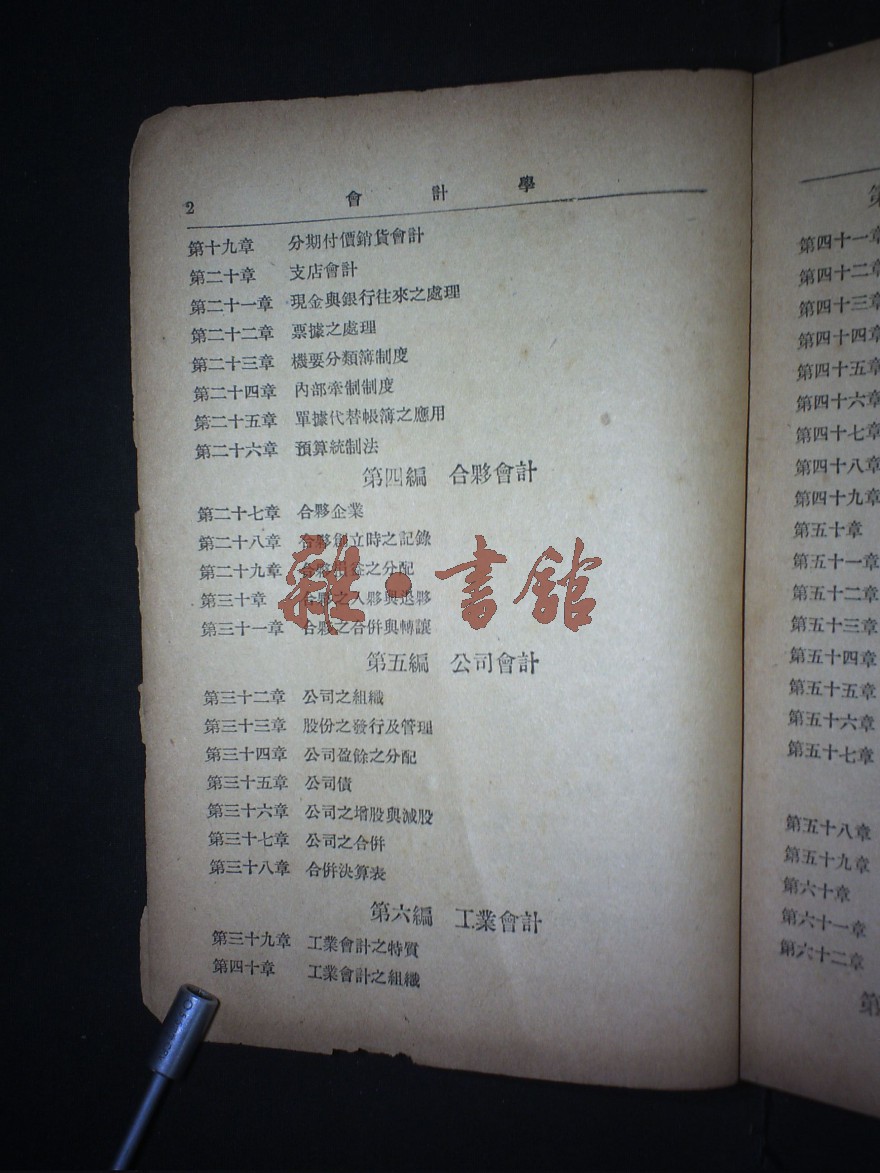 2 會計學
第十九章 分期付價銷貨會計
第二十章 支店會計
第二十一章 現金與銀行往來之處理
第二十二章 票據之處理
第二十三章 機要分類簿制度
第二十四章 內部牽制制度
第二十五章 單據代替帳簿之應用
第二十六章 預算統制法
第四編 合夥會計
第二十七章 合夥企業
第二十八章 合夥創立時之記錄
第二十九章 合夥損益之分配
第三十章 合夥之入夥與退夥
第三十一章 合夥之合併與轉讓
雜·書館
第五編 公司會計
第三十二章 公司之組織
第三十三章 股份之發行及管理
第三十四章 公司盈餘之分配
第三十五章 公司債
第三十六章 公司之增股與減股
第三十七章 公司之合併
第三十八章 合併決算表
第六編 工業會計
第三十九章 工業會計之特質
第四十章 工業會計之組織
第四十一章
第四十二章
第四十三章
第四十四章
第四十五章
第四十六章
第四十七章
第四十八章
第四十九章
第五十章
第五十一章
第五十二章
第五十三章
第五十四章
第五十五章
第五十六章
第五十七章
第五十八章
第五十九章
第六十章
第六十一章
第六十二章